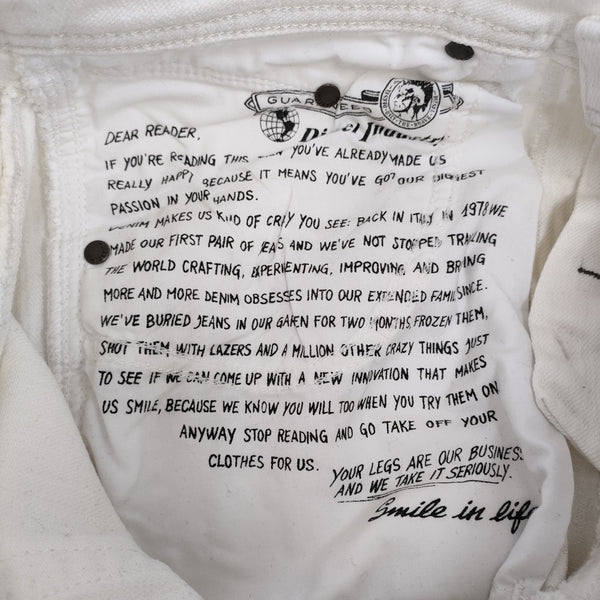 GUARANTEED
Diesel Industry
DEAR READER,
IF YOU'RE READING THIS THEN YOU'VE ALREADY MADE US
REALLY HAPPY BECAUSE IT MEANS YOU'VE GOT OUR BIGGEST
PASSION IN YOUR HANDS.
DENIM MAKES US KIND OF CRAZY YOU SEE: BACK IN ITALY IN 1978 WE
MADE OUR FIRST PAIR OF JEANS AND WE'VE NOT STOPPED TRAVELING
THE WORLD CRAFTING, EXPERIMENTING, IMPROVING, AND BRING
MORE AND MORE DENIM OBSESSES INTO OUR EXTENDED FAMILY SINCE.
WE'VE BURIED JEANS IN OUR GARDEN FOR TWO MONTHS, FROZEN THEM,
SHOT THEM WITH LAZERS AND A MILLION OTHER CRAZY THINGS JUST
TO SEE IF WE CAN COME UP WITH A NEW INNOVATION THAT MAKES
US SMILE, BECAUSE WE KNOW YOU WILL TOO WHEN YOU TRY THEM ON
ANYWAY STOP READING AND GO TAKE OFF YOUR
CLOTHES FOR US.
YOUR LEGS ARE OUR BUSINESS
AND WE TAKE IT SERIOUSLY.
Smile in life